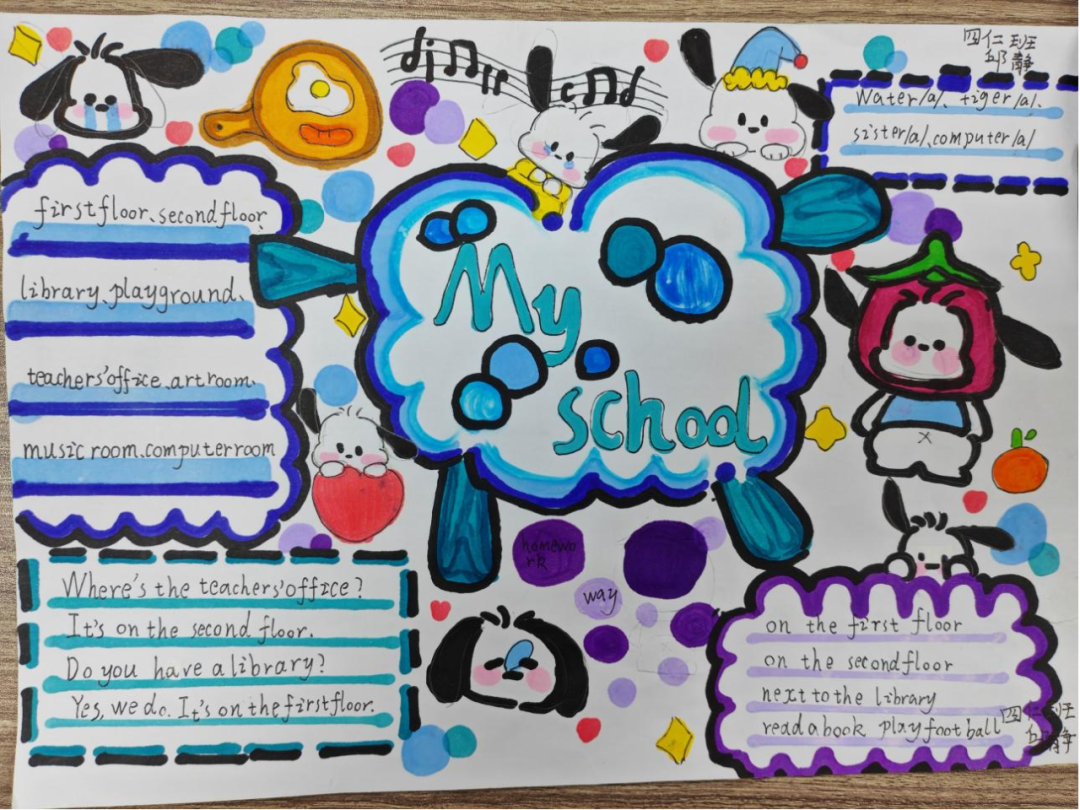 四仁班
邱静
water/a/、tiger/a/、
sister/a/、computer/a/
first floor、second floor
library、playground、
teachers' office、art room、
music room、computer room
My
school
Where's the teachers' office?
It's on the second floor.
Do you have a library?
Yes, we do. It's on the first floor.
homewo
rk
way
on the first floor
on the second floor
next to the library
read a book play football
四仁班
邱静